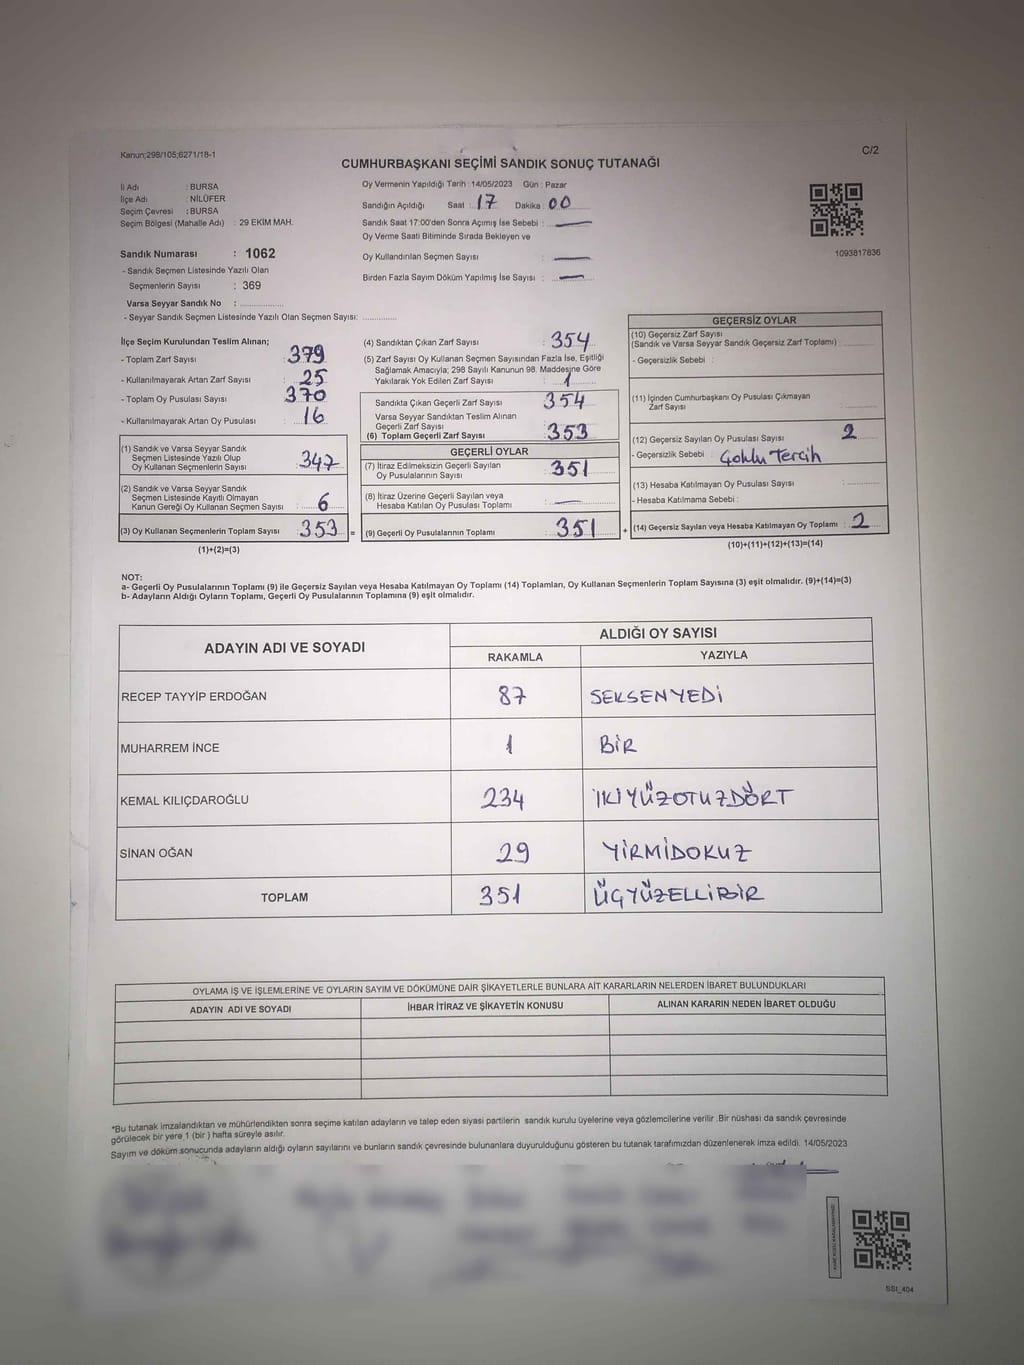 Kanun;298/105;6271/18-1
C/2
CUMHURBAŞKANI SEÇİMİ SANDIK SONUÇ TUTANAĞI
İl Adı : BURSA
İlçe Adı : NİLÜFER
Seçim Çevresi : BURSA
Seçim Bölgesi (Mahalle Adı) : 29 EKİM MAH.
Oy Vermenin Yapıldığı Tarih : 14/05/2023 Gün : Pazar
Sandığın Açıldığı Saat : 17 Dakika : 00
Sandık Saat 17:00'den Sonra Açımış İse Sebebi : —
Oy Verme Saati Bitiminde Sırada Bekleyen ve
Oy Kullandırılan Seçmen Sayısı : —
Birden Fazla Sayım Döküm Yapılmış İse Sayısı : —
1093817836
Sandık Numarası : 1062
- Sandık Seçmen Listesinde Yazılı Olan
Seçmenlerin Sayısı : 369
Varsa Seyyar Sandık No : ................
- Seyyar Sandık Seçmen Listesinde Yazılı Olan Seçmen Sayısı: ............
İlçe Seçim Kurulundan Teslim Alınan;
- Toplam Zarf Sayısı : 379
- Kullanılmayarak Artan Zarf Sayısı : 25
- Toplam Oy Pusulası Sayısı : 370
- Kullanılmayarak Artan Oy Pusulası : 16
(1) Sandık ve Varsa Seyyar Sandık
Seçmen Listesinde Yazılı Olup
Oy Kullanan Seçmenlerin Sayısı : 347
(2) Sandık ve Varsa Seyyar Sandık
Seçmen Listesinde Kayıtlı Olmayan
Kanun Gereği Oy Kullanan Seçmen Sayısı : 6
(3) Oy Kullanan Seçmenlerin Toplam Sayısı : 353 =
(1)+(2)=(3)
(4) Sandıktan Çıkan Zarf Sayısı : 354
(5) Zarf Sayısı Oy Kullanan Seçmen Sayısından Fazla İse, Eşitliği
Sağlamak Amacıyla; 298 Sayılı Kanunun 98. Maddesine Göre
Yakılarak Yok Edilen Zarf Sayısı : 1
Sandıkta Çıkan Geçerli Zarf Sayısı : 354
Varsa Seyyar Sandıktan Teslim Alınan
Geçerli Zarf Sayısı :
(6) Toplam Geçerli Zarf Sayısı : 353
GEÇERLİ OYLAR
(7) İtiraz Edilmeksizin Geçerli Sayılan
Oy Pusulalarının Sayısı : 351
(8) İtiraz Üzerine Geçerli Sayılan veya
Hesaba Katılan Oy Pusulası Toplamı : —
(9) Geçerli Oy Pusulalarının Toplamı : 351 +
GEÇERSİZ OYLAR
(10) Geçersiz Zarf Sayısı
(Sandık ve Varsa Seyyar Sandık Geçersiz Zarf Toplamı) : ............
- Geçersizlik Sebebi :
(11) İçinden Cumhurbaşkanı Oy Pusulası Çıkmayan
Zarf Sayısı : ............
(12) Geçersiz Sayılan Oy Pusulası Sayısı : 2
- Geçersizlik Sebebi : Çoklu Tercih
(13) Hesaba Katılmayan Oy Pusulası Sayısı : ............
- Hesaba Katılmama Sebebi :
(14) Geçersiz Sayılan veya Hesaba Katılmayan Oy Toplamı : 2
(10)+(11)+(12)+(13)=(14)
NOT:
a- Geçerli Oy Pusulalarının Toplamı (9) ile Geçersiz Sayılan veya Hesaba Katılmayan Oy Toplamı (14) Toplamları, Oy Kullanan Seçmenlerin Toplam Sayısına (3) eşit olmalıdır. (9)+(14)=(3)
b- Adayların Aldığı Oyların Toplamı, Geçerli Oy Pusulalarının Toplamına (9) eşit olmalıdır.
ADAYIN ADI VE SOYADI ALDIĞI OY SAYISI
RAKAMLA YAZIYLA
RECEP TAYYİP ERDOĞAN 87 SEKSENYEDİ
MUHARREM İNCE 1 BİR
KEMAL KILIÇDAROĞLU 234 İKİYÜZOTUZDÖRT
SİNAN OĞAN 29 YİRMİDOKUZ
TOPLAM 351 ÜÇYÜZELLİBİR
OYLAMA İŞ VE İŞLEMLERİNE VE OYLARIN SAYIM VE DÖKÜMÜNE DAİR ŞİKAYETLERLE BUNLARA AİT KARARLARIN NELERDEN İBARET BULUNDUKLARI
ADAYIN ADI VE SOYADI İHBAR İTİRAZ VE ŞİKAYETİN KONUSU ALINAN KARARIN NEDEN İBARET OLDUĞU
*Bu tutanak imzalandıktan ve mühürlendikten sonra seçime katılan adayların ve talep eden siyasi partilerin sandık kurulu üyelerine veya gözlemcilerine verilir .Bir nüshası da sandık çevresinde
görülecek bir yere 1 (bir ) hafta süreyle asılır.
Sayım ve döküm sonucunda adayların aldığı oyların sayılarını ve bunların sandık çevresinde bulunanlara duyurulduğunu gösteren bu tutanak tarafımızdan düzenlenerek imza edildi. 14/05/2023
SSI_404